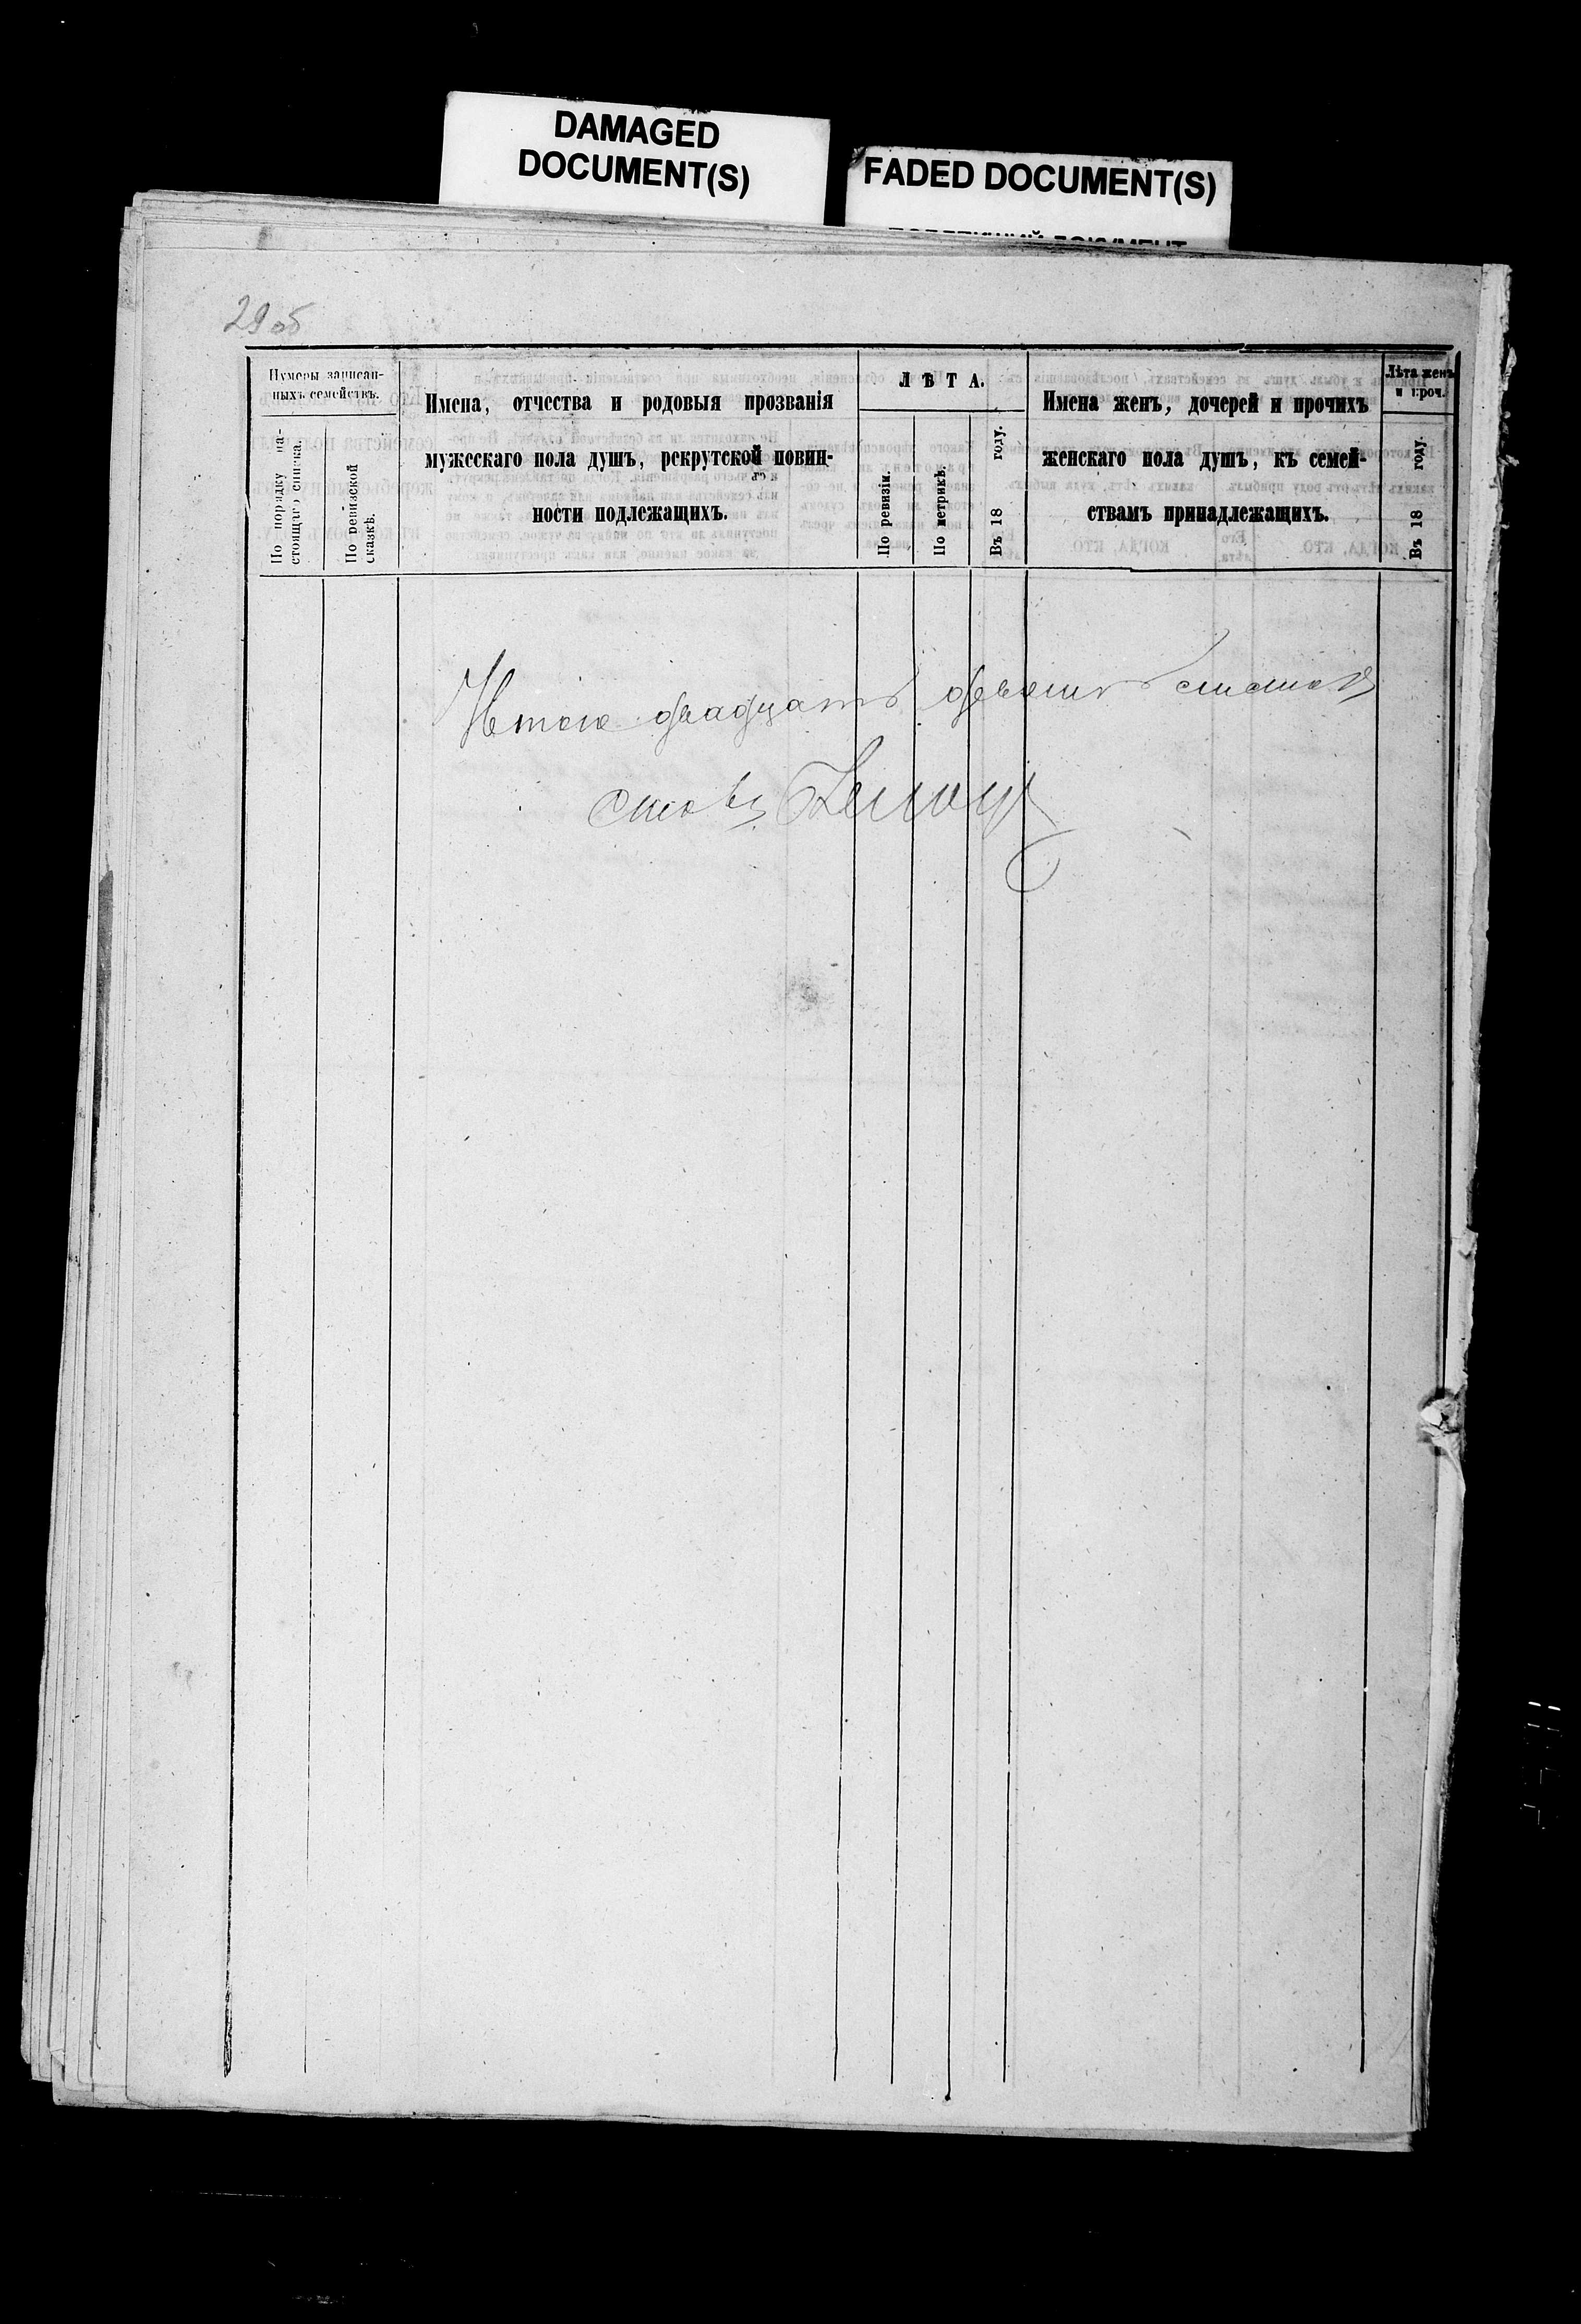 DAMAGED
DOCUMENT(S)
FADED DOCUMENT(S)
29 об
Нумеры записан-
ныхъ семействъ.
По порядку на-
стоящаго списка.
По ревизской
сказкѣ.
Имена, отчества и родовыя прозванія
мужескаго пола душъ, рекрутской повин-
ности подлежащихъ.
ЛѢТА.
По ревизіи.
По метрикѣ.
Въ 18 году.
Имена женъ, дочерей и прочихъ
женскаго пола душъ, къ семей-
ствамъ принадлежащихъ.
Лѣта женъ
и проч.
Въ 18 году.
Итого двадцать девять листовъ